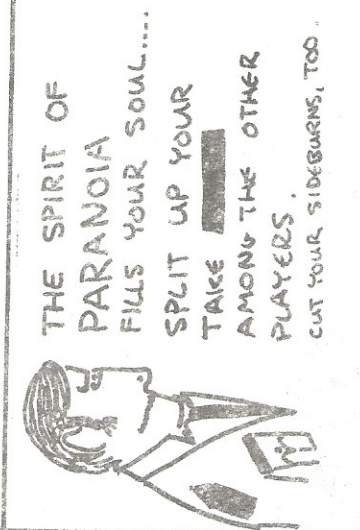 THE SPIRIT OF
PARANOIA
FILLS YOUR SOUL....
SPLIT UP YOUR
TAKE
AMONG THE OTHER
PLAYERS.
CUT YOUR SIDEBURNS, TOO..